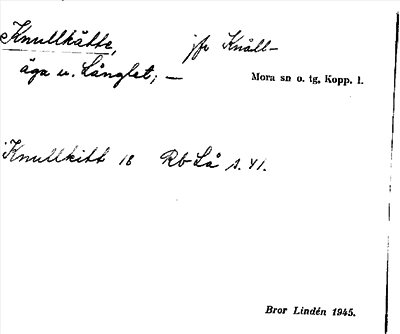 Knullkätte, jfr Knåll-
äga u. Långlet; —
Mora sn o. tg, Kopp. l.
Knullkitt 18 Rb Så s. 41.
Bror Lindén 1945.